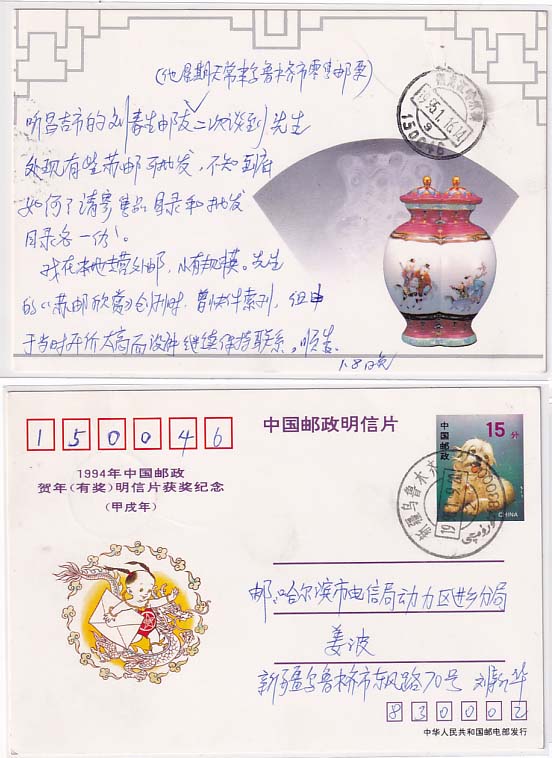 (他星期天常来乌鲁木齐市零售邮票)
听昌吉市的刘春生邮友二次谈到先生
处现有些苏邮可批发,不知到底
如何?请寄售品目录和批发
目录各一份。
我在本地主营外邮,小有规模。先生
的《苏邮欣赏》创刊时,曾快件索刊,但由
于当时开价太高而没有继续保持联系。顺告。
1.8日晚
150046
中国邮政明信片
中国邮政
15分
CHINA
1994年中国邮政
贺年(有奖)明信片获奖纪念
(甲戌年)
新疆乌鲁木齐
邮:哈尔滨市电信局动力区进乡分局
姜波
新疆乌鲁木齐市东风路70号 刘新华
830002
中华人民共和国邮电部发行